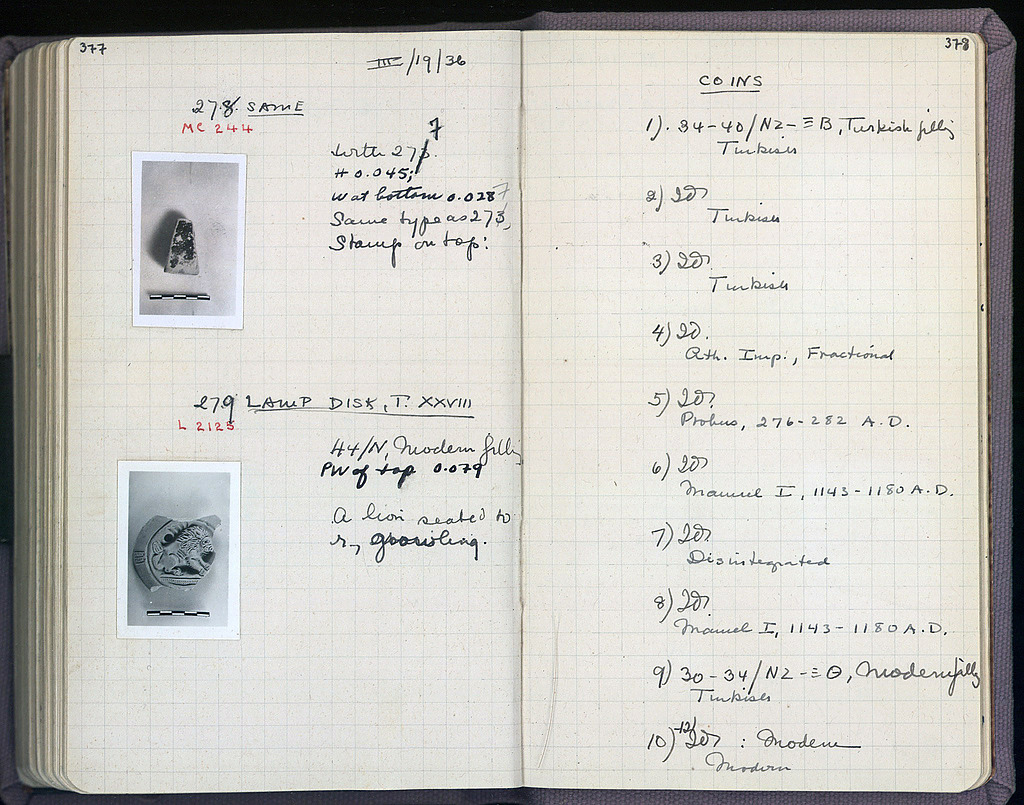 377
III/19/36
278 SAME
MC 244
7
With 273.
H 0.045;
W at bottom 0.028
Same type as 273,
Stamp on top:
279 LAMP DISK, T. XXVIII
L 2125
44/N, Modern filling
PW of top 0.079
A lion seated to
r, growling.
378
COINS
1). 34-40/N2-ΞB, Turkish filling
Turkish
2) ID.
Turkish
3) ID.
Turkish
4) ID.
Ath. Imp., Fractional
5) ID.
Probus, 276-282 A.D.
6) ID.
Manuel I, 1143-1180 A.D.
7) ID.
Disintegrated
8) ID.
Manuel I, 1143-1180 A.D.
9) 30-34/N2-ΞΘ, Modern filling
Turkish
10)-12) ID. : Modern
Modern